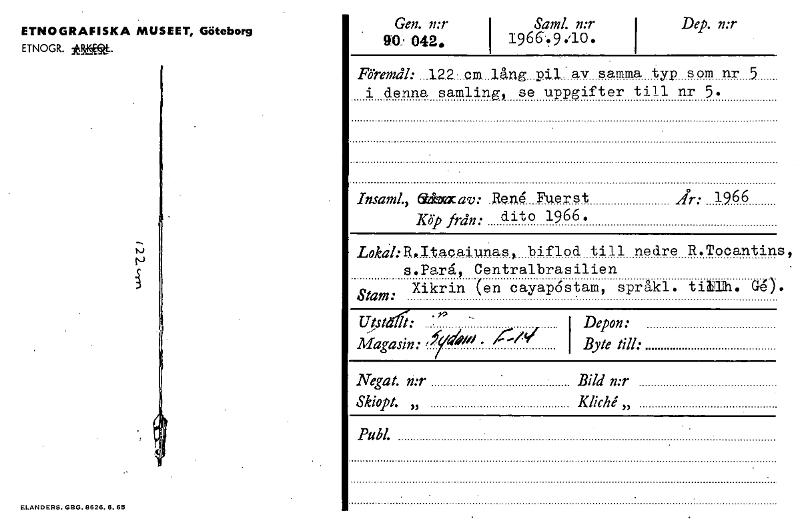 ETNOGRAFISKA MUSEET, Göteborg
ETNOGR. ARKEOL.
122 cm
ELANDERS. GBG. 8626. 6. 65
Gen. n:r Saml. n:r Dep. n:r
90 042. 1966.9.10.
Föremål: 122 cm lång pil av samma typ som nr 5
i denna samling, se uppgifter till nr 5.
Insaml., av: René Fuerst År: 1966
Köp från: dito 1966.
Lokal: R.Itacaiunas, biflod till nedre R.Tocantins,
s.Pará, Centralbrasilien
Stam: Xikrin (en cayapóstam, språkl. tillh. Gé).
Utställt: Depon:
Magasin: Sydam. F-14 Byte till:
Negat. n:r Bild n:r
Skiopt. „ Kliché „
Publ.